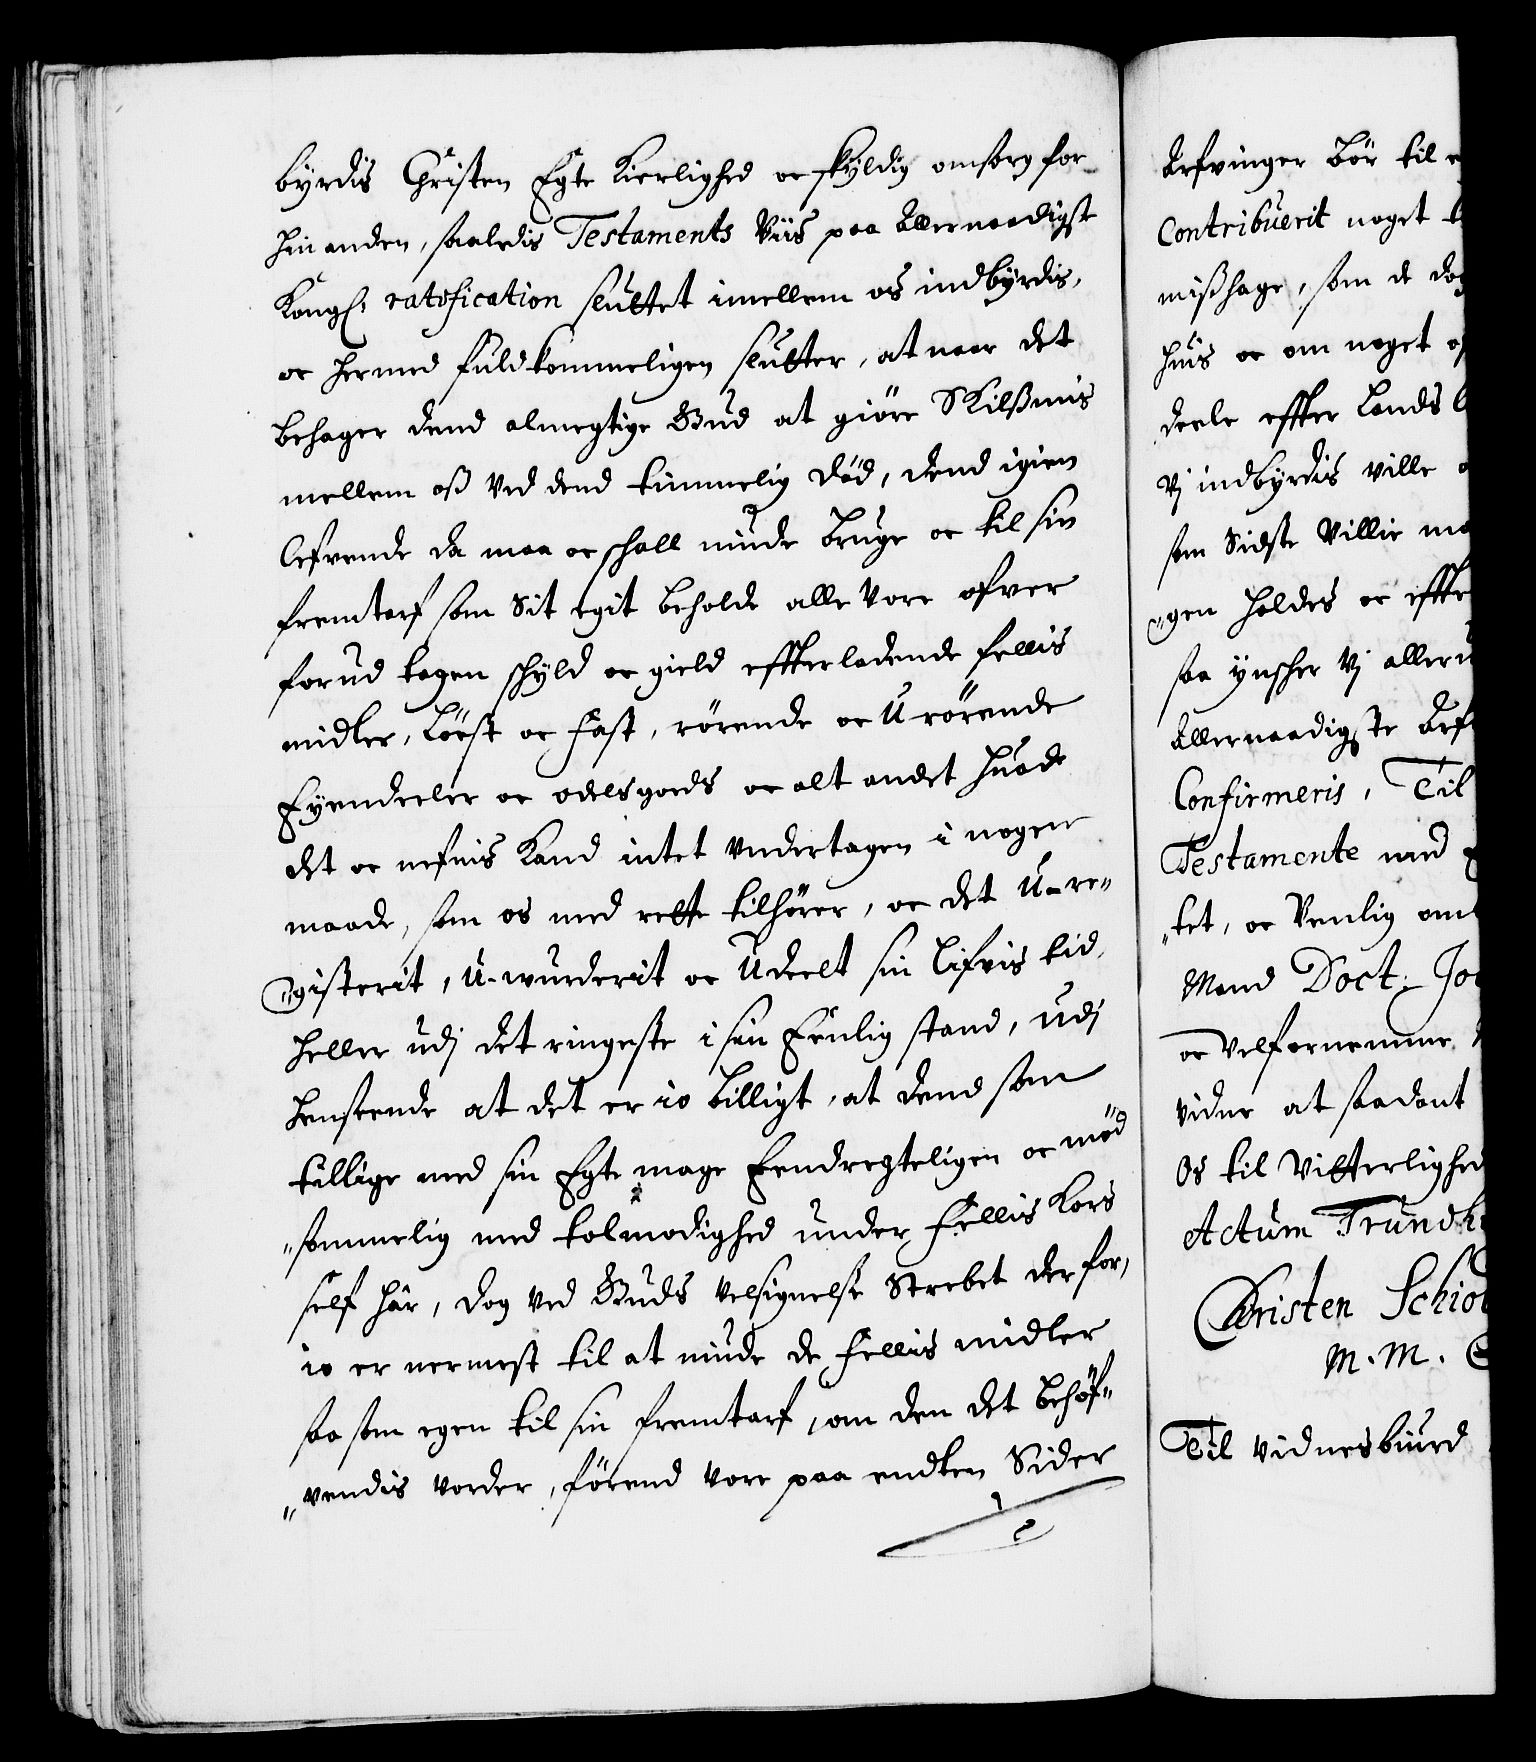 byrdis Christen Egte Kierlighed oc skyldig omsorg for
hin anden, saaledis Testaments Viis paa Allernaadigst
Kongl: ratification sluttet imellem os indbyrdis,
oc hermed fuldkommeligen slutter, at naar det
behager dend almegtige Gud at giöre Skilßmis
mellem oß ved dend timmelig Död, dend igien
lefvende da maa oc schall niude bruge oc til sin
fremtarf som Sit egit beholde alle vore ofver
forud tagen schyld oc gield effterladende fellis
midler, Löest oc fast, rörende oc U-rörende
Eyendeeler oc odelsgoeds oc alt andet huade
det oc nefnis kand intet undertagen i nogen
maade, som os med rette tilhörer, oc det U-re„
„gisterit, U-wurderit oc Udeelt sin Lifvis tid,
heller udj det ringeste i sin Eenlig stand, udj
henseende at det er io billigt, at dend som
tillige med sin Egte mage Eendregteligen oc möd
„sommelig med tolmodighed under fellis Kors
self här, dog ved Guds velsignelse Strebet derfor,
io er nermest til at niude de fellis midler
saa som egen til sin fremtarf, om den det behöf„
„vendis vorder, förend vore paa endten Sider
Arfvinger bör til
Contribuerit noget
mißhage, som de dog
huis oc om noget
deele effter Lands
Vj indbyrdis ville
som Sidste Villie
„gen holdes oc effte
saa ynscher Vj aller
Allernaadigste Arf
Confirmeris, Til
Testamente med
„tet, oc Venlig om
Mand Doct: Jo
oc Velfornemme
vidne at saadant
Os til Vitterlighed
Actum Trundh
Christen Schiol
M. M.
Til vidnesbiurd